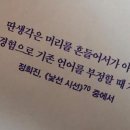 딴생각은 머리를 흔들어서가 아
경험으로 기존 언어를 부정할 때 가
정희진, 《낯선 시선》 70 중에서